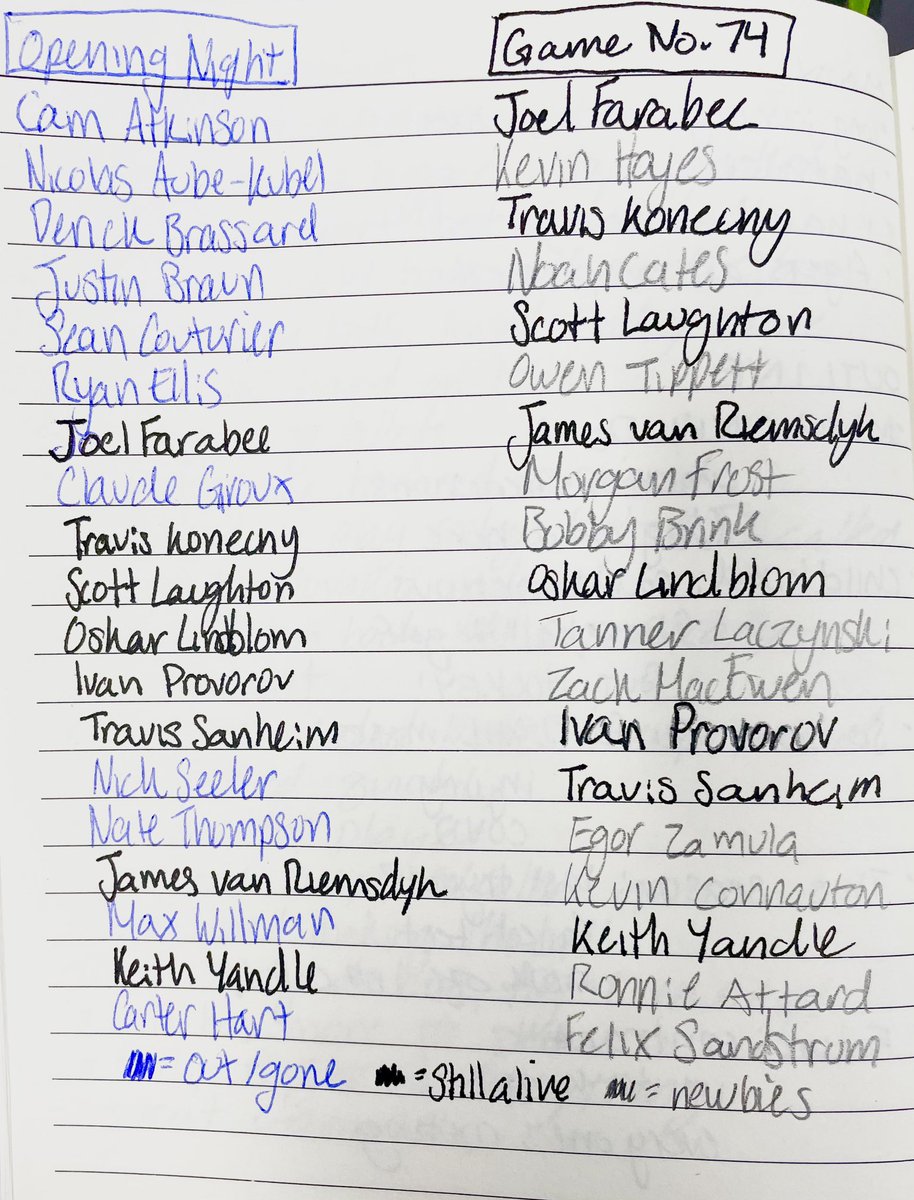 Opening Night
Cam Atkinson
Nicolas Aube-Kubel
Derick Brassard
Justin Braun
Sean Couturier
Ryan Ellis
Joel Farabee
Claude Giroux
Travis Konecny
Scott Laughton
Oskar Lindblom
Ivan Provorov
Travis Sanheim
Nick Seeler
Nate Thompson
James van Riemsdyk
Max Willman
Keith Yandle
Carter Hart
Game No. 74
Joel Farabee
Kevin Hayes
Travis Konecny
Noah Cates
Scott Laughton
Owen Tippett
James van Riemsdyk
Morgan Frost
Bobby Brink
Oskar Lindblom
Tanner Laczynski
Zack MacEwen
Ivan Provorov
Travis Sanheim
Egor Zamula
Kevin Connauton
Keith Yandle
Ronnie Attard
Felix Sandstrom
= out/gone = Still alive = newbies